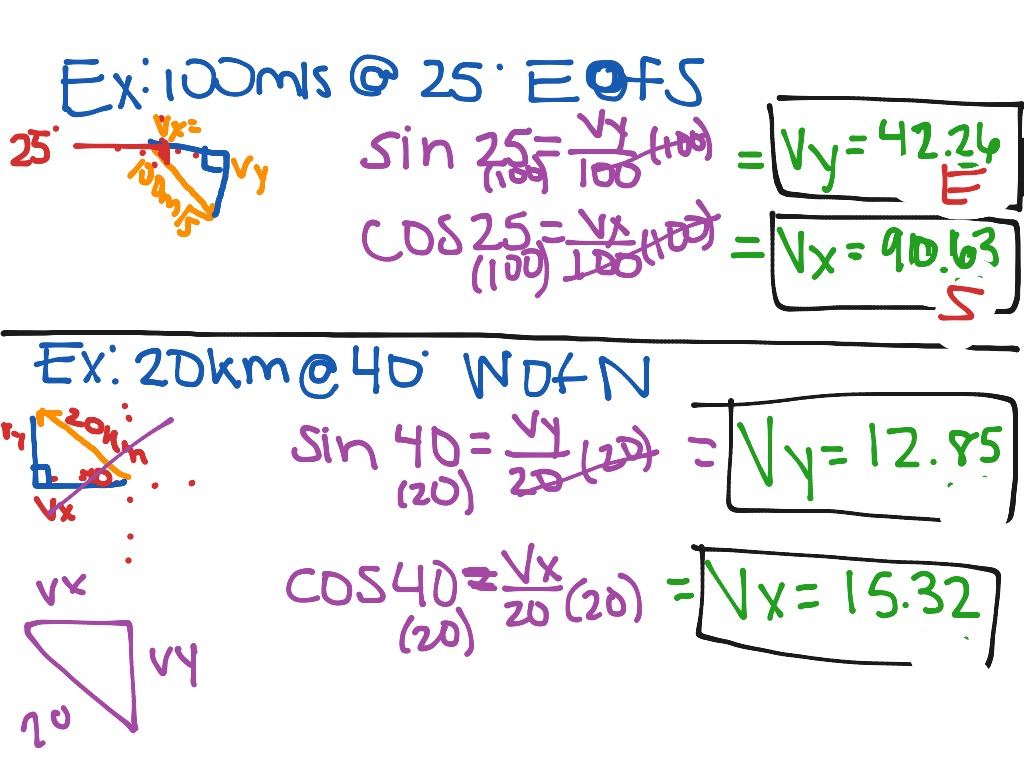 Ex: 100m/s @ 25° E of S
25°
Vx=
100m/s
Vy
sin 25 = Vy/100 (100)
(100)
= Vy = 42.26
E
cos 25 = Vx/100 (100)
(100)
= Vx = 90.63
S
Ex: 20km @ 40° W of N
Vy
20km
40
Vx
sin 40 = Vy/20 (20)
(20)
= Vy = 12.85
cos 40 = Vx/20 (20)
(20)
= Vx = 15.32
Vx
Vy
20